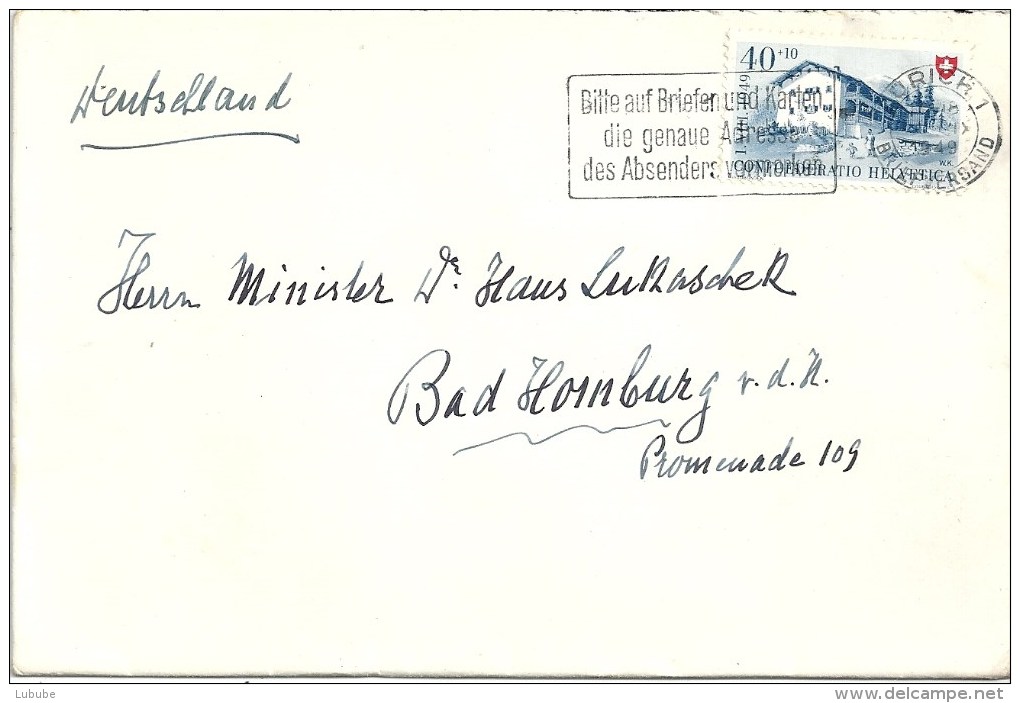 Deutschland
40+10
I. VIII. 1949
Bitte auf Briefen und Karten
die genaue Adresse
des Absenders vermerken
CONFOEDERATIO HELVETICA
W.K.
1949
BRIEFVERSAND
Herrn Minister Dr. Hans Lukaschek
Bad Homburg v.d.H.
Promenade 109
Lubube
www.delcampe.net